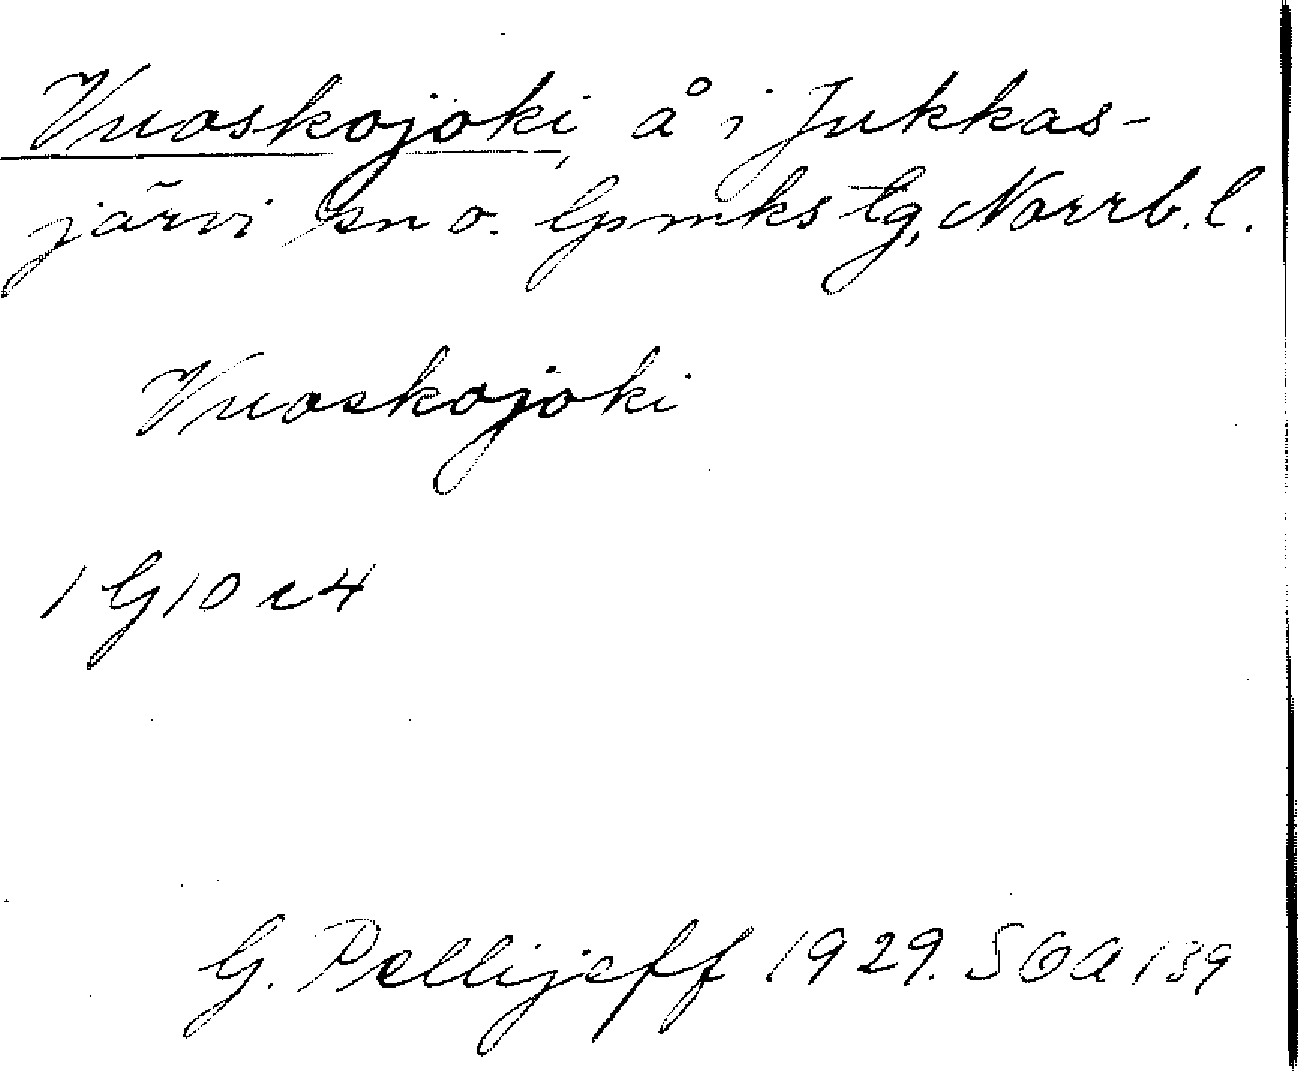 Vuoskojoki, å i Jukkas-
järvi sn o. Gvmks tg, Norrb. l.
Vuoskojoki
1 G 10 c 4
G. Pellijeff 1929. SOA 139